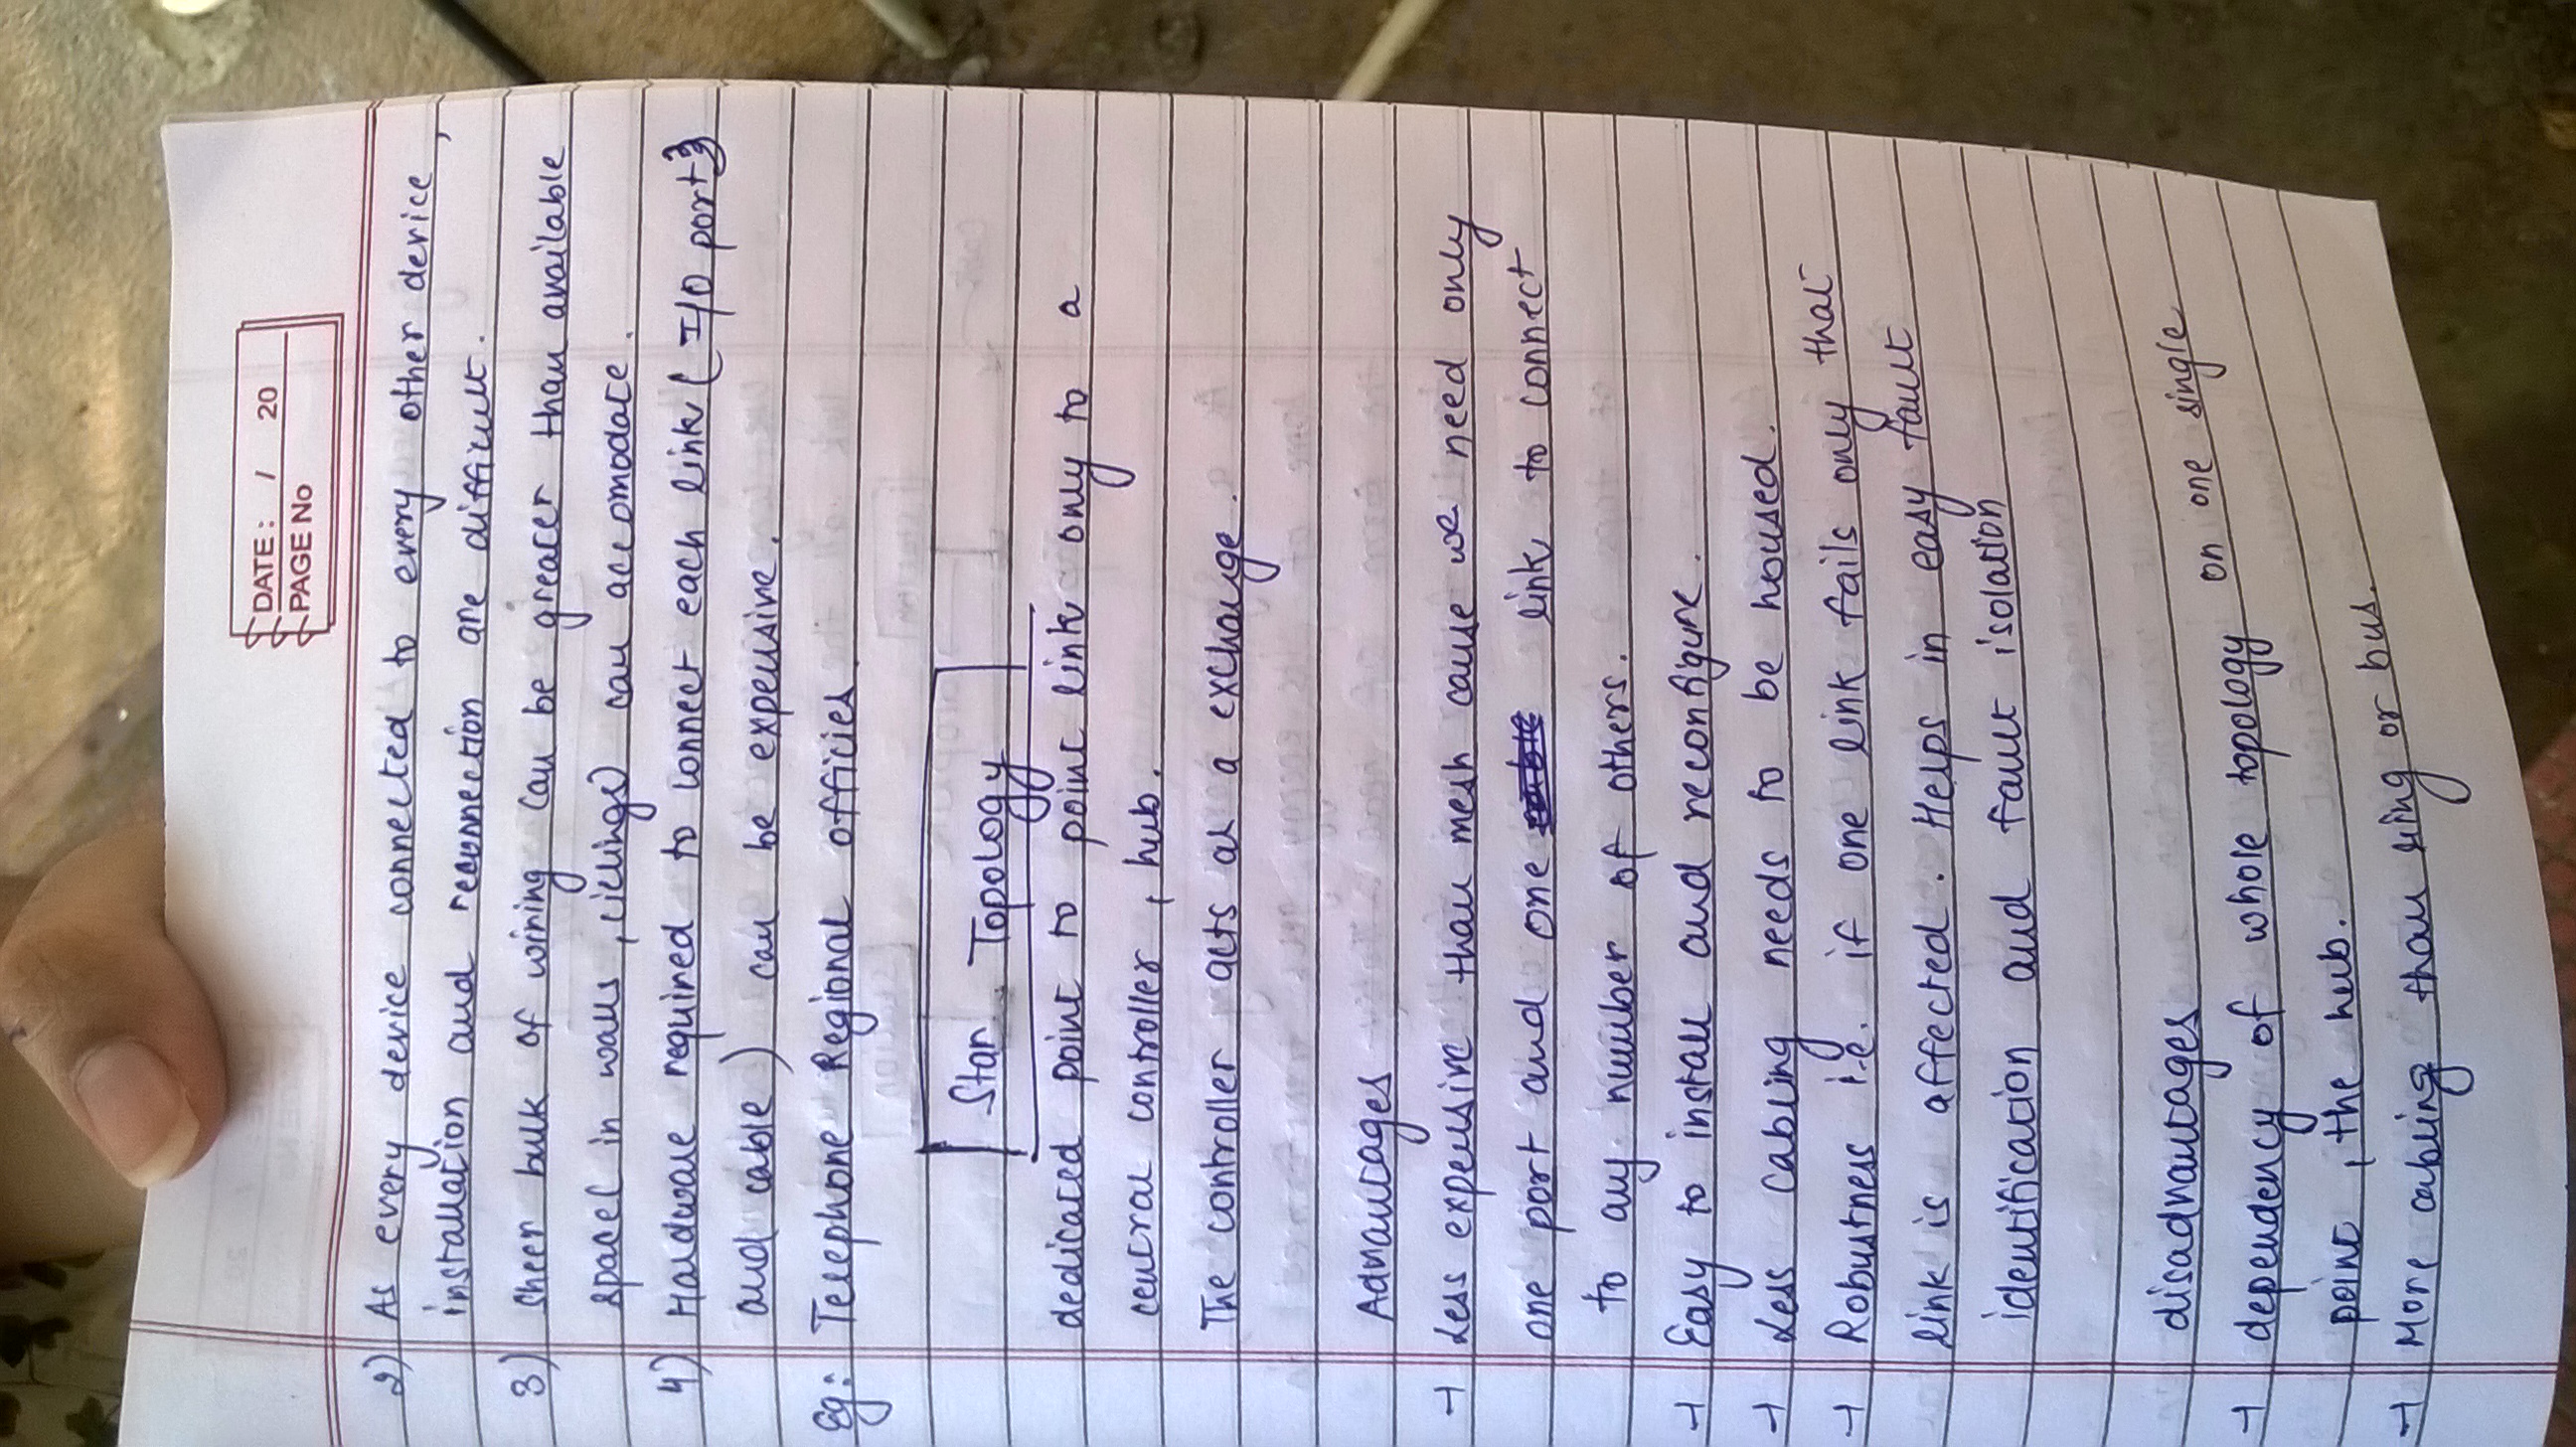 DATE: / 20
PAGE No
2) As every device connected to every other device,
installation and reconnection are difficult.
3) Sheer bulk of wiring can be greater than available
space( in walls, cielings) can accomodate.
4) Hardware required to connect each link ( I/O ports
and cable) can be expensive.
Eg: Telephone Regional officies
Star Topology
dedicated point to point link only to a
central controller, hub.
The controller acts as a exchange.
Advantages
→ Less expensive than mesh cause we need only
one port and one link to connect
to any number of others.
→ Easy to install and reconfigure.
→ Less cabling needs to be housed.
→ Robustness i.e. if one link fails only that
link is affected. Helps in easy fault
identification and fault isolation
disadvantages
→ dependency of whole topology on one single
point, the hub.
→ More cabling than ring or bus.